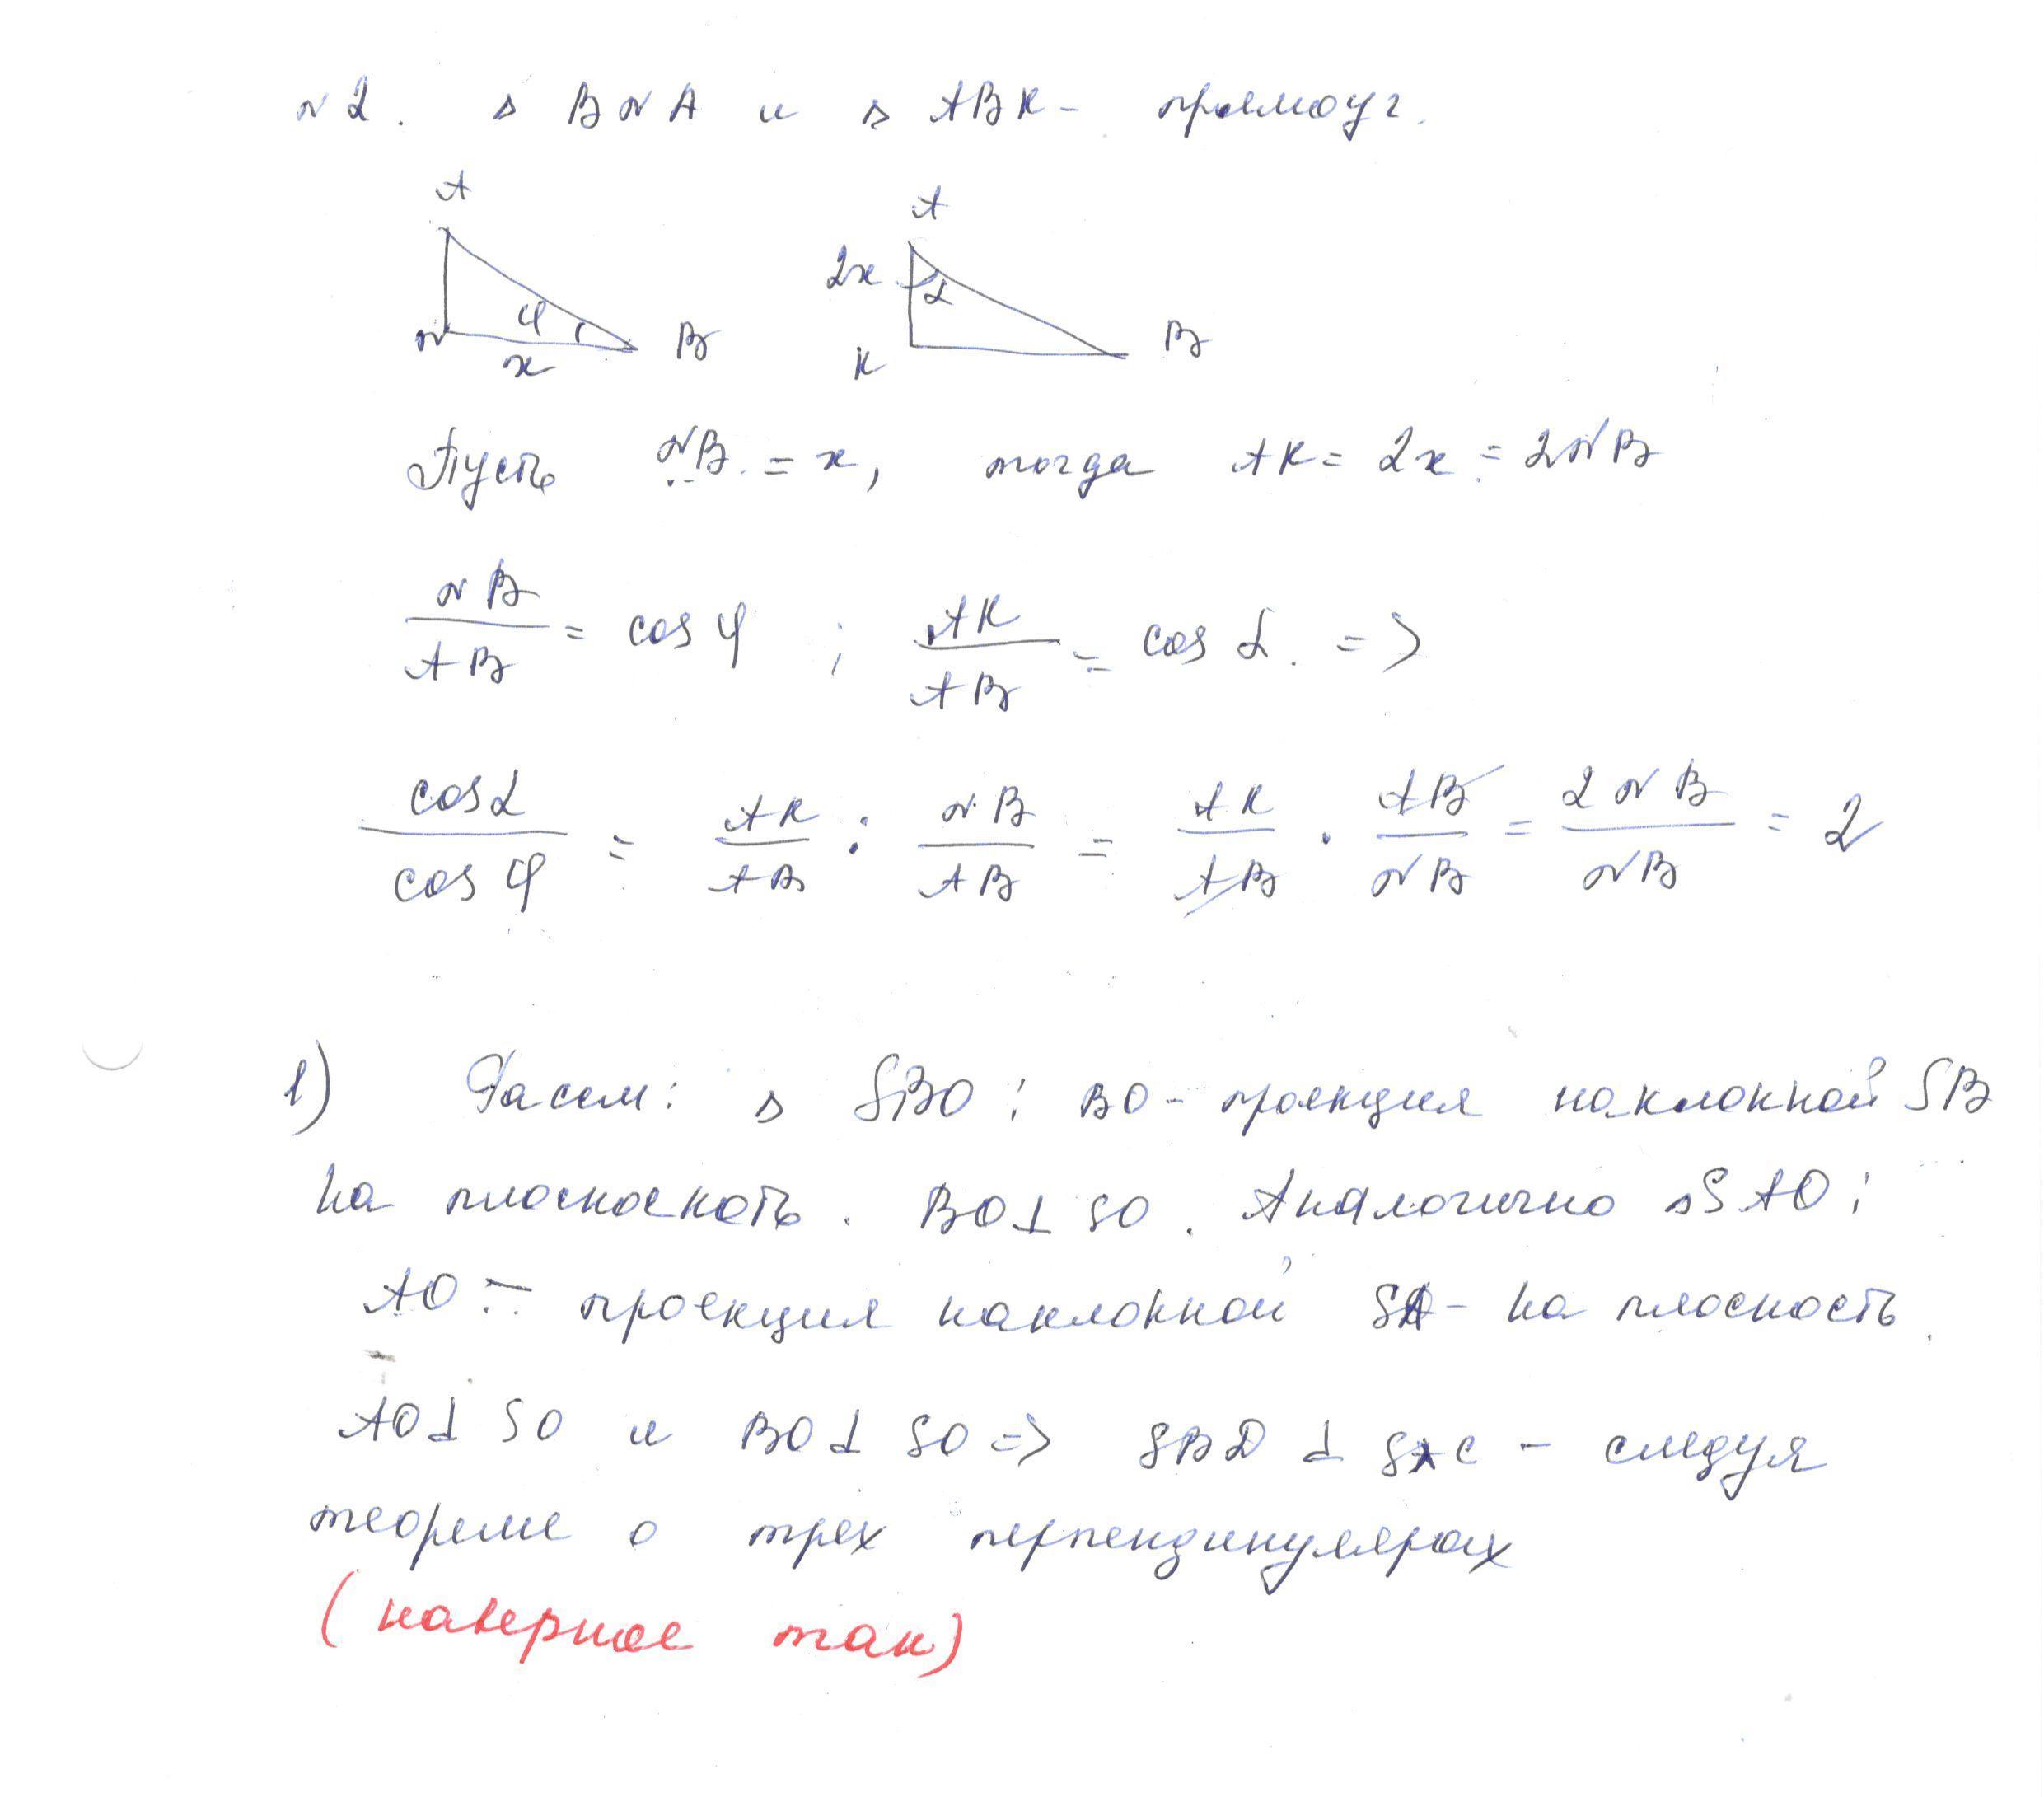 N2. Δ BNA и Δ ABK - прямоуг.
A
N
φ
x
B
A
2x
α
K
B
Пусть NB = x, тогда AK = 2x = 2NB
NB/AB = cos φ ; AK/AB = cos α. =>
cos α/cos φ = AK/AB : NB/AB = AK/AB · AB/NB = 2NB/NB = 2
1) Рассм: Δ SBO: BO - проекция наклонной SB
на плоскость. BO⊥SO. Аналогично ΔSAO:
AO - проекция наклонной SA - на плоскость.
AO⊥SO и BO⊥SO => SBD ⊥ SAC - следуя
теореме о трех перпендикулярах
(наверное так)